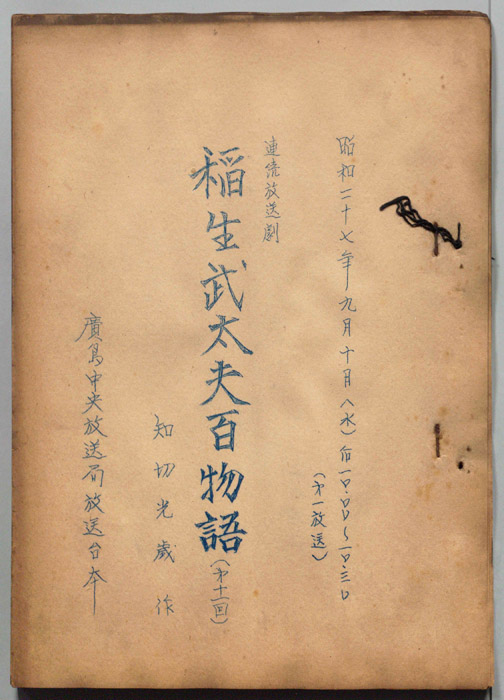 昭和二十七年九月十日(水)后一〇・〇〇~一〇・三〇
(第一放送)
連続放送劇
稲生武太夫百物語(第十一回)
知切光歳 作
廣島中央放送局放送台本